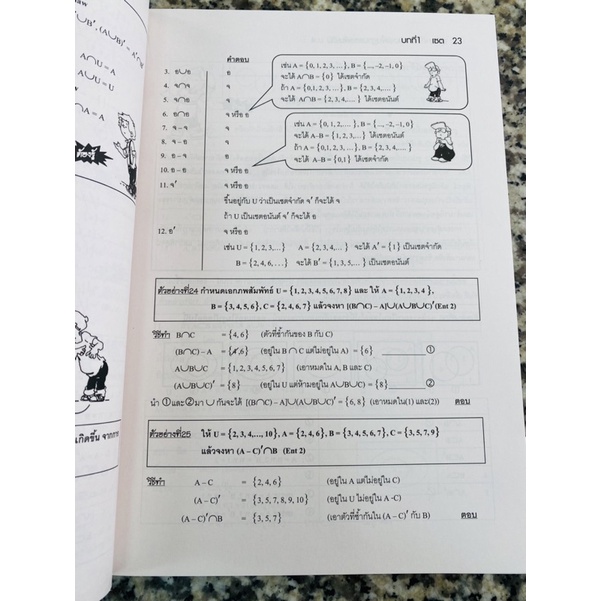 ∪B', (A∪B)' = A'∩
A∩U = A
A∪U = U
∩A = A
เกิดขึ้น จากการ
บทที่1 เซต 23
คำตอบ
3. อ∪อ อ
4. จ∩จ จ
5. จ∩อ จ
6. อ∩อ จ หรือ อ
7. จ – จ จ
8. จ – อ จ
9. อ – จ อ
10. อ – อ จ หรือ อ
11. จ' จ หรือ อ
ขึ้นอยู่กับ U ว่าเป็นเซตจำกัด จ' ก็จะได้ จ
ถ้า U เป็นเซตอนันต์ จ' ก็จะได้ อ
12. อ' จ หรือ อ
เช่น U = {1, 2, 3,...} A = {2, 3, 4,... } จะได้ A' = {1} เป็นเซตจำกัด
B = {2, 4, 6, . . .} จะได้ B' = {1, 3, 5,... } เป็นเซตอนันต์
เช่น A = {0, 1, 2, 3, ...}, B = {..., –2, –1, 0}
จะได้ A∩B = {0} ได้เซตจำกัด
ถ้า A = {0,1,2,3, ...}, B = {2, 3, 4, ...}
จะได้ A∩B = {2, 3, 4,... } ได้เซตอนันต์
เช่น A = {0, 1, 2,.... }, B = {..., –2, –1, 0}
จะได้ A–B = {1, 2, 3,...} ได้เซตอนันต์
ถ้า A = {0, 1, 2, 3,...}, B = {2, 3, 4,... }
จะได้ A–B = {0,1} ได้เซตจำกัด
ตัวอย่างที่24 กำหนดเอกภพสัมพัทธ์ U = {1, 2, 3, 4, 5, 6, 7, 8} และ ให้ A = {1, 2, 3, 4 },
B = {3, 4, 5, 6}, C = {2, 4, 6, 7} แล้วจงหา [(B∩C) – A]∪(A∪B∪C)' (Ent 2)
วิธีทำ B∩C = {4, 6} (ตัวที่ซ้ำกันของ B กับ C)
(B∩C) – A = {4, 6} (อยู่ใน B ∩ C แต่ไม่อยู่ใน A) = {6} ①
A∪B∪C = {1, 2, 3, 4, 5, 6, 7} (เอาหมดใน A, B และ C)
(A∪B∪C)' = {8} (อยู่ใน U แต่ห้ามอยู่ใน A∪B∪C) = {8} ②
นำ ①และ②มา ∪ กันจะได้ [(B∩C) – A]∪(A∪B∪C)' = {6, 8} (เอาหมดใน(1) และ(2)) ตอบ
ตัวอย่างที่25 ให้ U = {2, 3, 4,..., 10}, A = {2, 4, 6}, B = {3, 4, 5, 6, 7}, C = {3, 5, 7, 9}
แล้วจงหา (A – C)'∩B (Ent 2)
วิธีทำ A – C = {2, 4, 6} (อยู่ใน A แต่ไม่อยู่ใน C)
(A – C)' = {3, 5, 7, 8, 9, 10} (อยู่ใน U ไม่อยู่ใน A -C)
(A – C)'∩B = {3, 5, 7} (เอาตัวที่ซ้ำกันใน (A – C)' กับ B) ตอบ